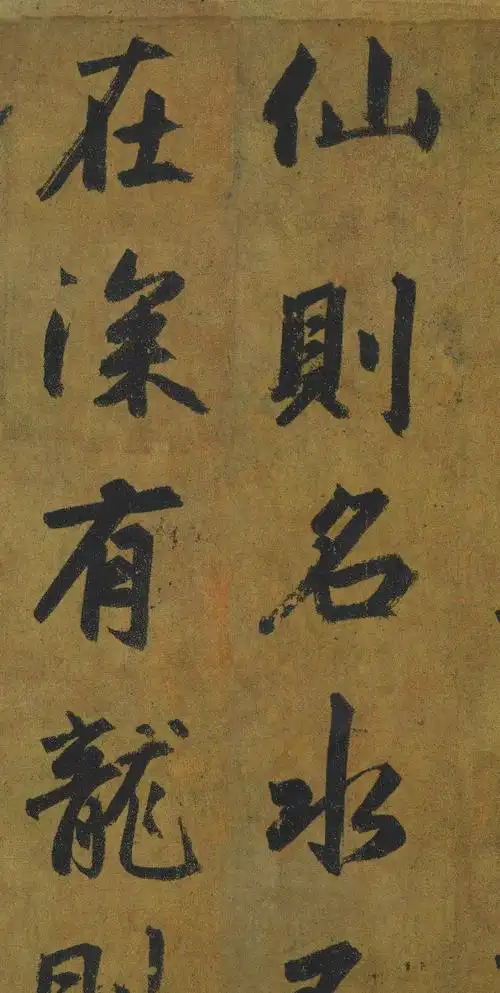 仙則名水不
在深有龍則